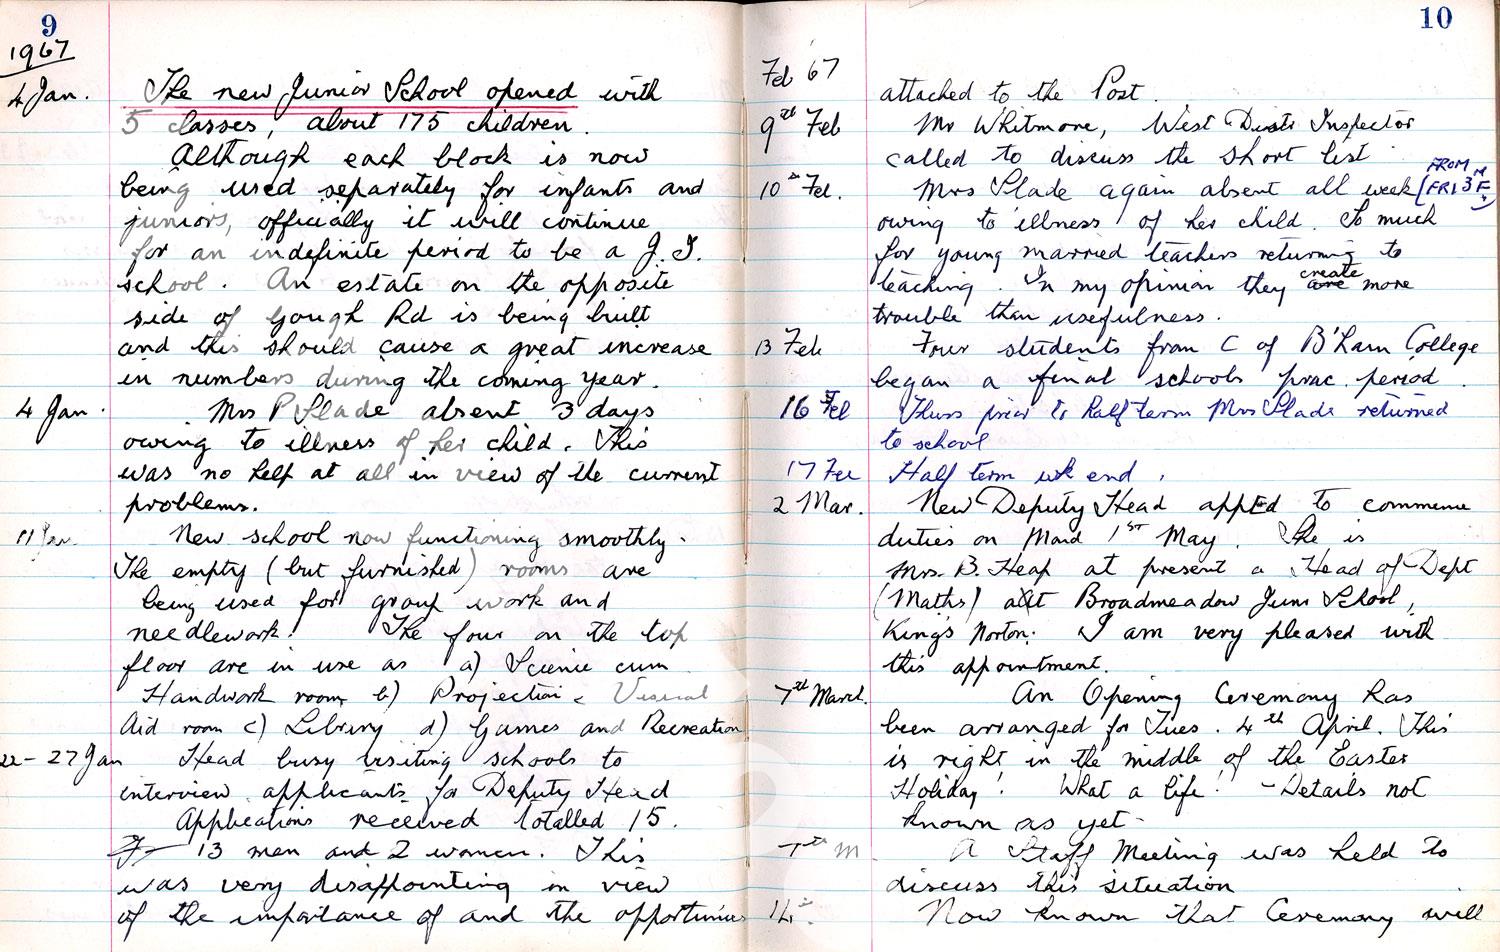 9
1967
4 Jan. The new Junior School opened with
5 classes, about 175 children.
Although each block is now
being used separately for infants and
juniors, officially it will continue
for an indefinite period to be a J.I.
school. An estate on the opposite
side of Gough Rd is being built
and this should cause a great increase
in numbers during the coming year.
4 Jan. Mrs P Slade absent 3 days
owing to illness of her child. This
was no help at all in view of the current
problems.
11 Jan. New school now functioning smoothly.
The empty (but furnished) rooms are
being used for group work and
needlework. The four on the top
floor are in use as a) Science cum
Handwork room b) Projection & Visual
Aid room c) Library d) Games and Recreation
22-27 Jan Head busy visiting schools to
interview applicants for Deputy Head
Applications received totalled 15.
13 men and 2 women. This
was very disappointing in view
of the importance of and the opportunities
10
Feb '67 attached to the Post.
9th Feb Mr Whitmore, West Distr Inspector
called to discuss the short list
10th Feb. Mrs Slade again absent all week (FROM FRI 3rd F)
owing to illness of her child. So much
for young married teachers returning to
teaching. In my opinion they are create more
trouble than usefulness.
13 Feb Four students from C of B'ham College
began a final schools prac. period.
16 Feb Thurs prior to half term Mrs Slade returned
to school
17 Feb Half term wk end.
2 Mar. New Deputy Head apptd to commence
duties on 1st May. She is
Mrs. B. Heap at present a Head of Dept
(Maths) at Broadmeadow Junr School,
King's Norton. I am very pleased with
this appointment.
7th March. An Opening Ceremony has
been arranged for Tues. 4th April. This
is right in the middle of the Easter
Holiday! What a life! - Details not
known as yet -
7th M. A Staff Meeting was held to
discuss this situation
14th. Now known that Ceremony will